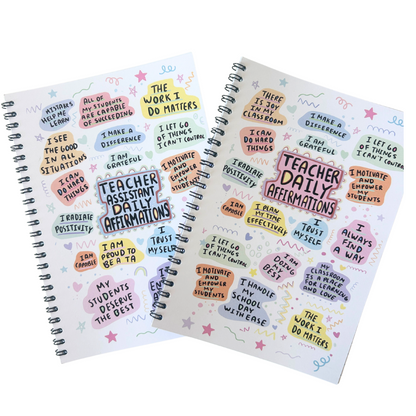 MISTAKES
HELP ME
LEARN
ALL OF
MY STUDENTS
ARE CAPABLE
OF SUCCEEDING
THE
WORK I
DO MATTERS
I SEE
THE GOOD
IN ALL
SITUATIONS
I MAKE A
DIFFERENCE
I LET GO
OF THINGS
I CAN'T CONTROL
I AM
GRATEFUL
I CAN
DO HARD
THINGS
TEACHER
ASSISTANT
DAILY
AFFIRMATIONS
I MOTIVATE
AND
EMPOWER
MY
STUDENTS
I RADIATE
POSITIVITY
I
TRUST
MYSELF
I AM
CAPABLE
I AM
PROUD TO
BE A TA
MY
STUDENTS
DESERVE
THE BEST
THERE
IS JOY
IN MY
CLASSROOM
I MAKE A
DIFFERENCE
I LET GO
OF THINGS
I CAN'T CONTROL
I CAN
DO HARD
THINGS
I AM
GRATEFUL
I RADIATE
POSITIVITY
TEACHER
DAILY
AFFIRMATIONS
I MOTIVATE
AND
EMPOWER
MY
STUDENTS
I AM
CAPABLE
I PLAN
MY TIME
EFFECTIVELY
I
TRUST
MYSELF
I
ALWAYS
FIND A
WAY
I LET GO
OF THINGS
I CAN'T CONTROL
I AM
DOING
MY
BEST
MY
CLASSROOM
IS A PLACE
FOR LEARNING
AND LOVE
I MOTIVATE
AND
EMPOWER
MY
STUDENTS
I HANDLE
MY
SCHOOL
DAY
WITH EASE
THE
WORK I
DO MATTERS